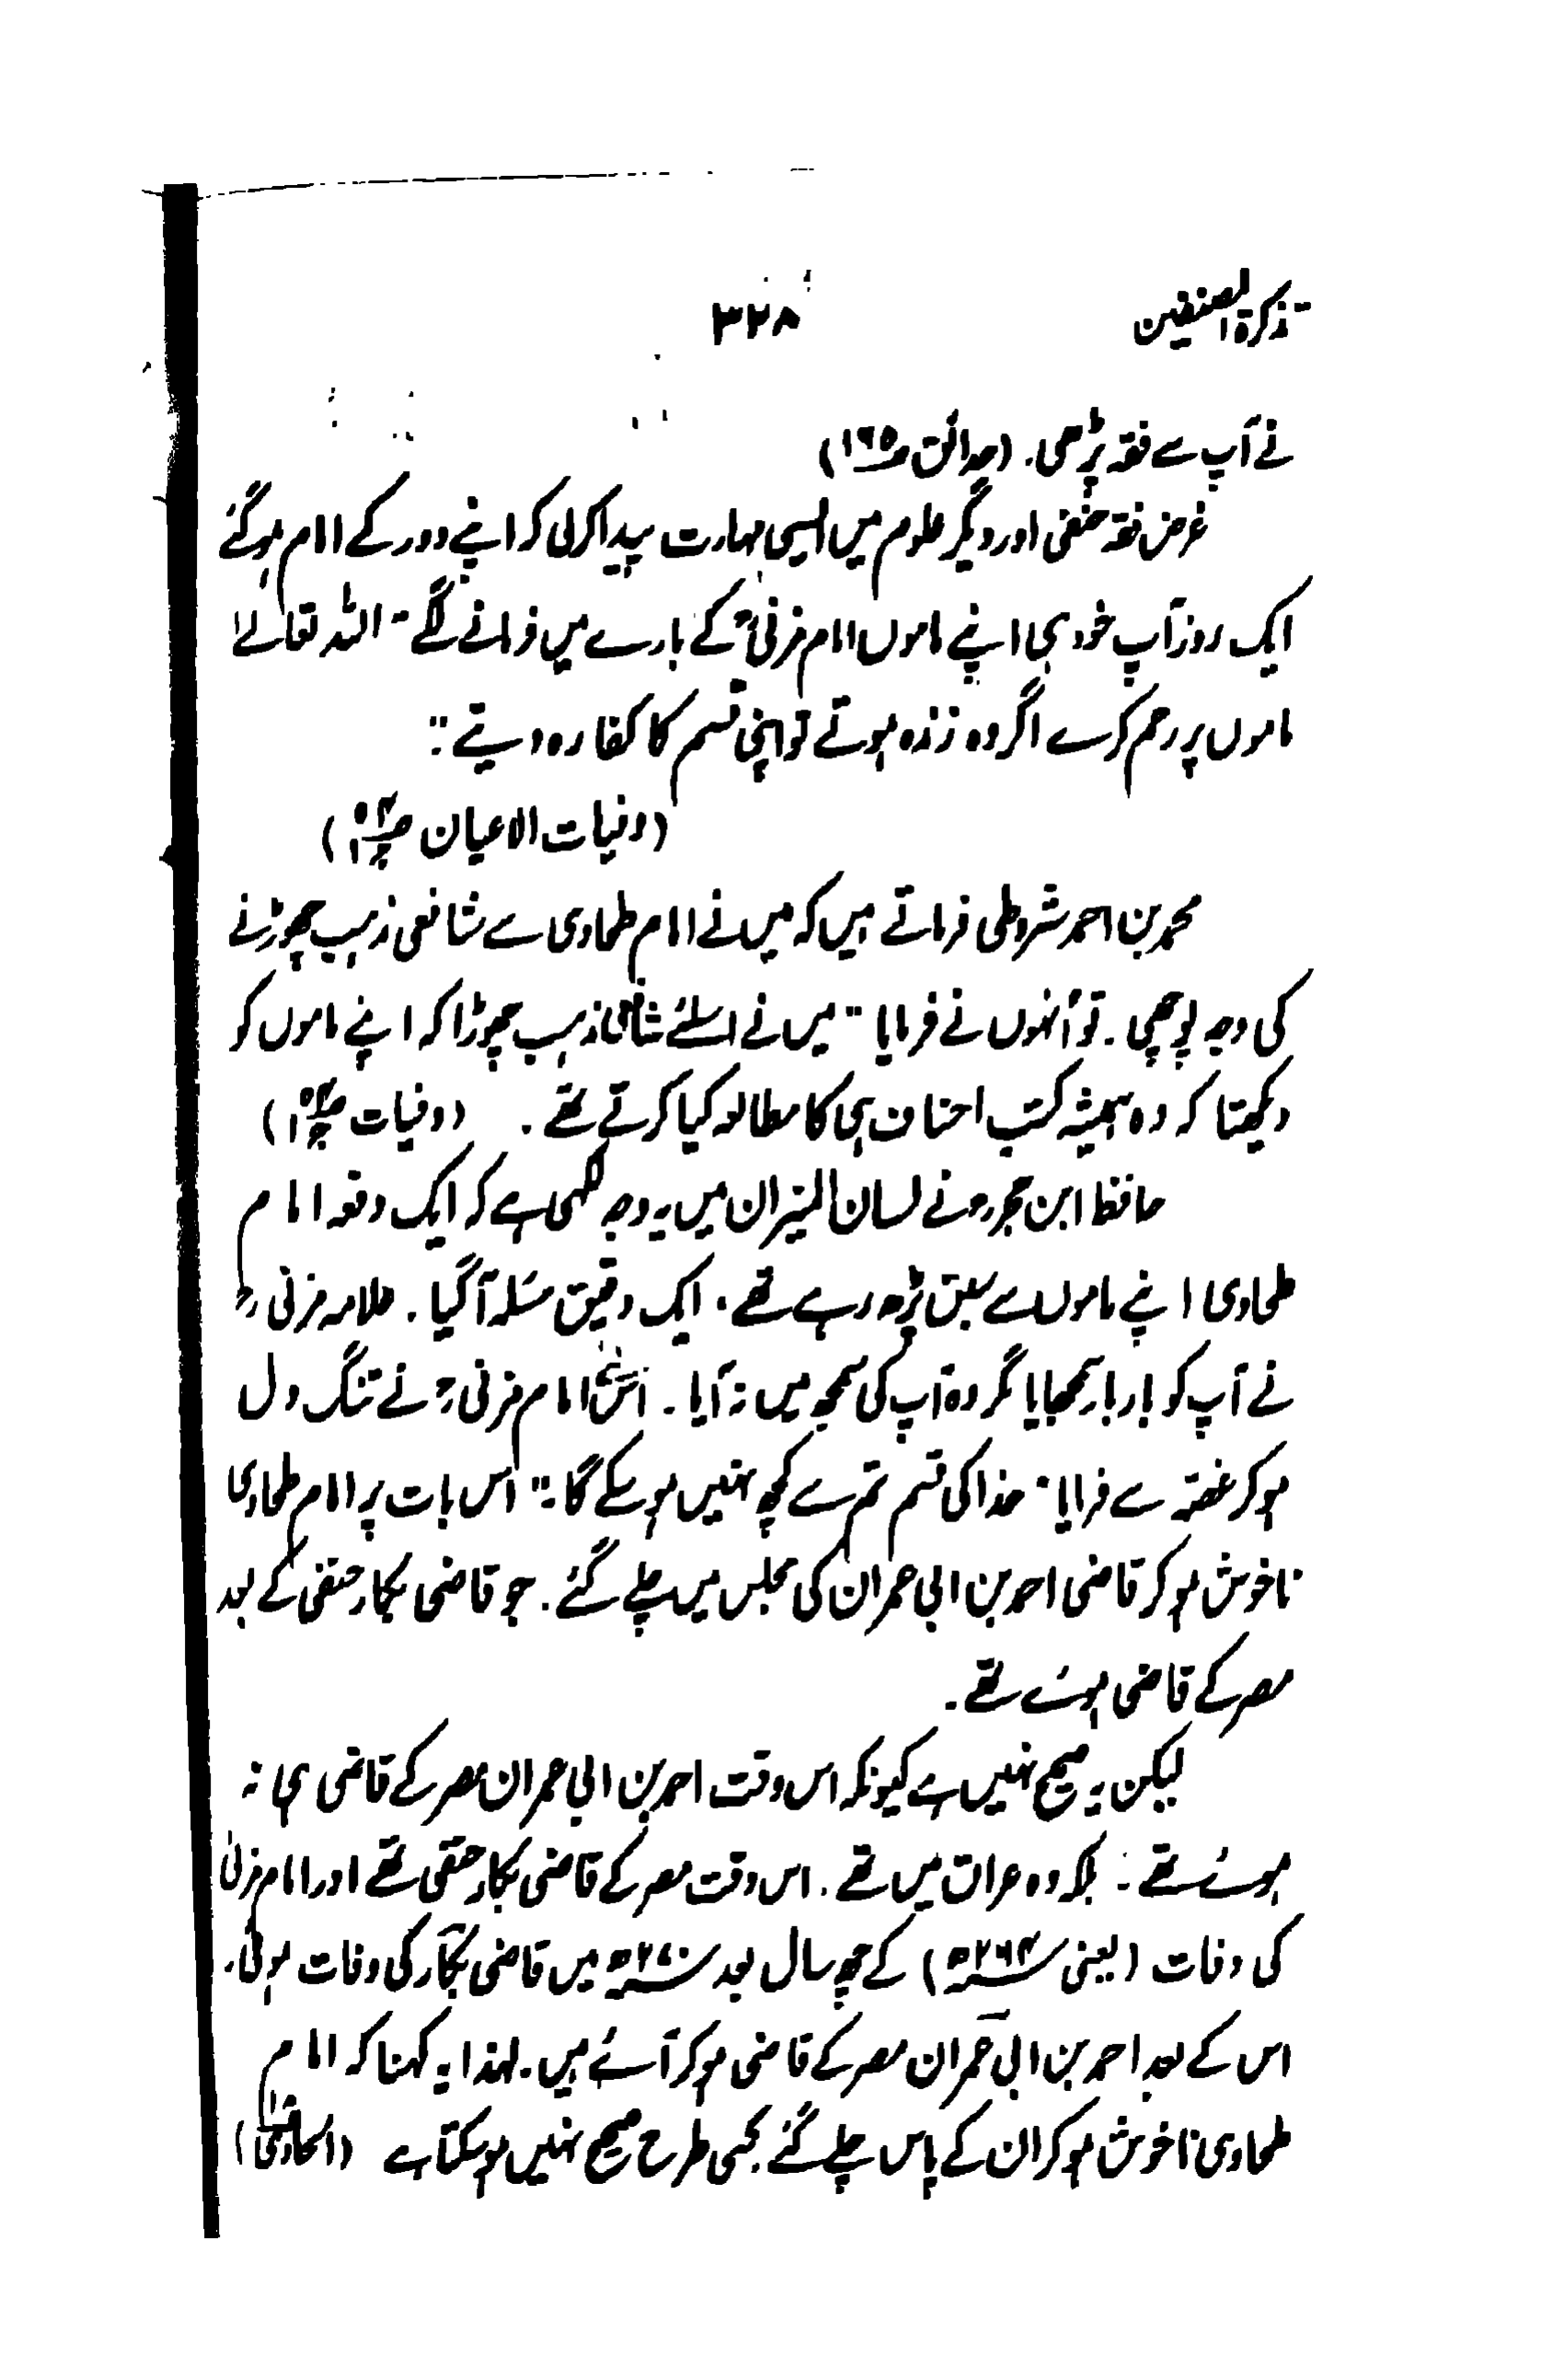 تذکرۃ المصنفین
۳۲۸
نے آپ سے فقہ پڑھی۔ (حدائق ص۱۶۵)
غرض فقہ حنفی اور دیگر علوم میں ایسی مہارت پیدا کر لی کہ اپنے دور کے امام ہو گئے
ایک روز آپ خود ہی اپنے ماموں امام مزنیؒ کے بارے میں فرمانے لگے "اللہ تعالےٰ
ماموں پر رحم کرے اگر وہ زندہ ہوتے تو اپنی قسم کا کفارہ دیتے۔"
(وفیات الاعیان)
محمد بن احمد شروطی فرماتے ہیں کہ میں نے امام طحاوی سے شافعی مذہب چھوڑنے
کی وجہ پوچھی۔ تو اُنہوں نے فرمایا "میں نے اسلئے شافعی مذہب چھوڑا کہ اپنے ماموں کو
دیکھتا کہ وہ ہمیشہ کتب احناف ہی کا مطالعہ کیا کرتے تھے۔ (وفیات)
حافظ ابن حجرؒ نے لسان المیزان میں یہ وجہ لکھی ہے کہ ایک دفعہ امام
طحاوی اپنے ماموں سے سبق پڑھ رہے تھے۔ ایک دقیق مسئلہ آ گیا۔ علامہ مزنی رح
نے آپ کو بار بار سمجھایا مگر وہ آپ کی سمجھ میں نہ آیا۔ اس لئے امام مزنی رح نے تنگ دل
ہو کر غصّہ سے فرمایا "خدا کی قسم تم سے کچھ نہیں ہو سکے گا۔" اس بات پر امام طحاوی
ناخوش ہو کر قاضی احمد بن ابی عمران کی مجلس میں چلے گئے۔ جو قاضی بکار حنفی کے بعد
مصر کے قاضی ہوئے تھے۔
لیکن یہ صحیح نہیں ہے کیونکہ اس وقت احمد بن ابی عمران مصر کے قاضی ہی نہ
ہوئے تھے۔ بلکہ وہ عراق میں تھے۔ اس وقت مصر کے قاضی بکار حنفی تھے اور امام مزنی
کی وفات (یعنی ۲۶۴ھ) کے چھ سال بعد ۲۷۰ھ میں قاضی بکّار کی وفات ہوئی۔
اس کے بعد احمد بن ابی عمران مصر کے قاضی ہو کر آئے ہیں۔ لہذا یہ کہنا کہ امام
طحاوی ناخوش ہو کر ان کے پاس چلے گئے کسی طرح صحیح نہیں ہو سکتا ہے (الحاوی)